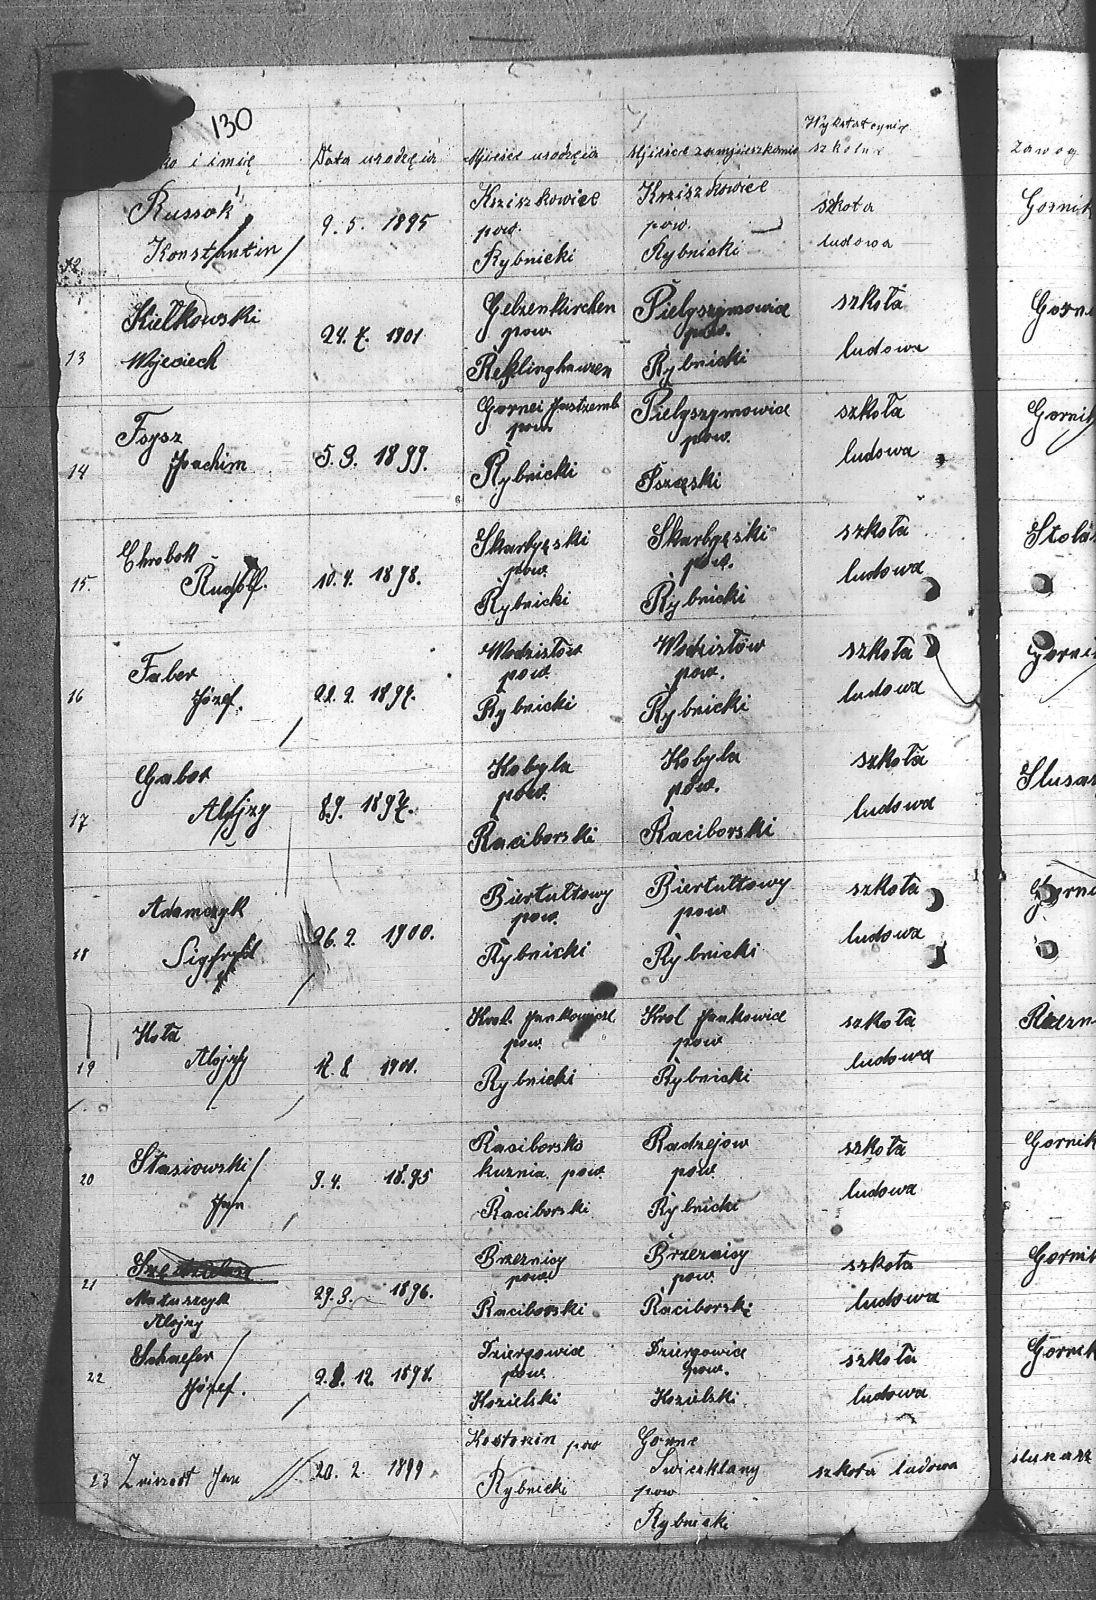 130
i imię Data urodzęia Miejsce urodzęia Miejsce zamieszkania Wykształcynie szkolne zawog
Russok Konstantin 9. 5. 1895 Krziszkowice pow. Rybnicki Krziszkowice pow. Rybnicki szkoła ludowa Gornik
13 Kiełkowski Wojeciech 24. 7. 1901 Gelzenkirchen pow. Reklinghauzen Pielgszymowice pow. Rybnicki szkoła ludowa Gorni
14 Fojsz Joachim 5. 3. 1899. Gornei Jastzemb pow. Rybnicki Pielgszymowice pow. Pszczęski szkoła ludowa Gornik
15. Chrobok Rudolf. 10. 4. 1898. Skarbęski pow. Rybnicki Skarbęski pow. Rybnicki szkoła ludowa Stola
16 Faber Józef. 22. 2. 1897. Wodzisłów pow. Rybnicki Wodzisłów pow. Rybnicki szkoła ludowa Gorni
17 Gabor Alojzy 8.9. 1897. Kobyla pow. Raciborski Kobyla pow. Raciborski szkoła ludowa Slusa
18 Adamczyk Sigfryd 26. 2. 1900. Biertułtowy pow. Rybnicki Biertułtowy pow Rybnicki szkoła ludowa Gorni
19 Kota Alojzy 8. 1901. Krol. Jankowice pow. Rybnicki Krol Jankowice pow Rybnicki szkoła ludowa Rzezn
20 Stasiowski Jan 9. 4. 1895 Raciborsko kuznia pow. Raciborski Radzejow pow. Rybnicki szkoła ludowa Gornik
21 Matuszcyk Alojzy 29. 3. 1896. Brzeznicy pow Raciborski Brzeznicy pow. Raciborski szkoła ludowa Gornik
22 Schaefer Józef. 12. 1897. Dziergowice pow. Kozielski Dziergowice pow. Kozielski szkoła ludowa Gornik
23 Jan 20. 2. 1899 pow Rybnicki Gorne Swierklany pow Rybnicki szkoła ludowa slusasz